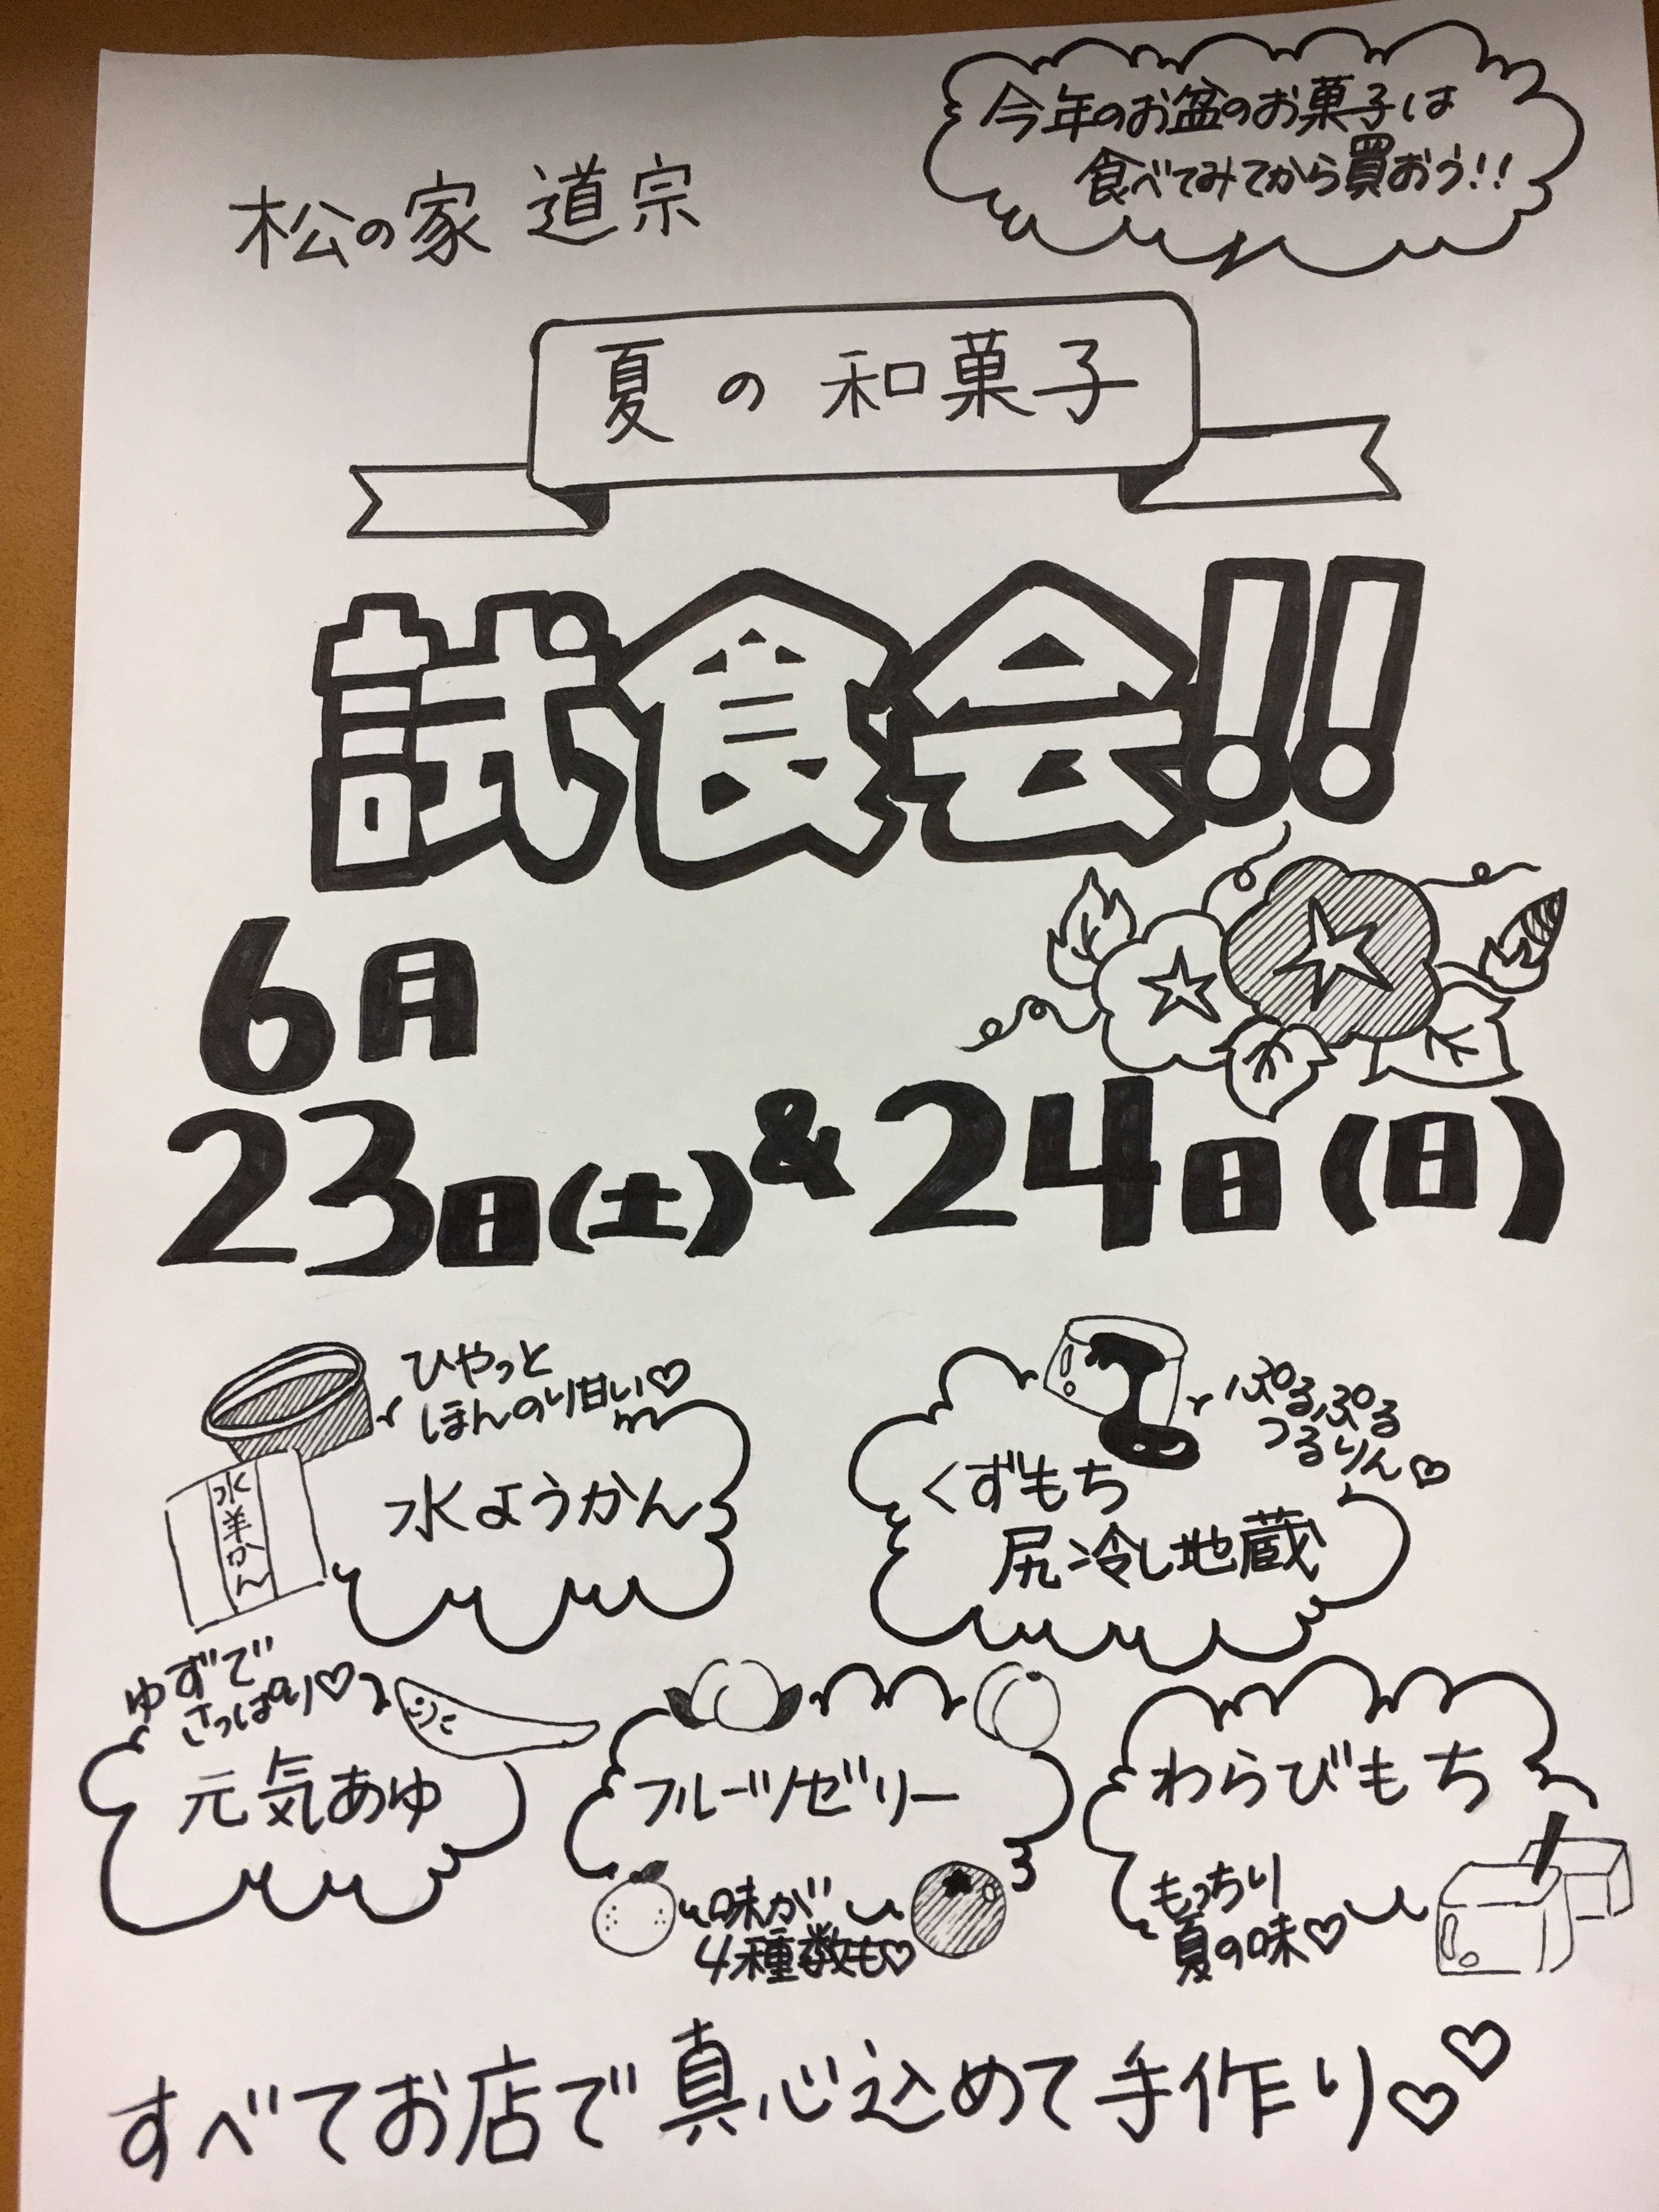 今年のお盆のお菓子は
食べてみてから買おう!!
松の家 道宗
夏の和菓子
試食会!!
6月
23日(土)&24日(日)
ひやっと
ほんのり甘い♡
水ようかん
水羊かん
ぷるぷる
つるりん♡
くずもち
尻冷し地蔵
ゆずで
さっぱり♡
元気あゆ
フルーツゼリー
味が
4種類も♡
わらびもち
もっちり
夏の味♡
すべてお店で真心込めて手作り♡♡